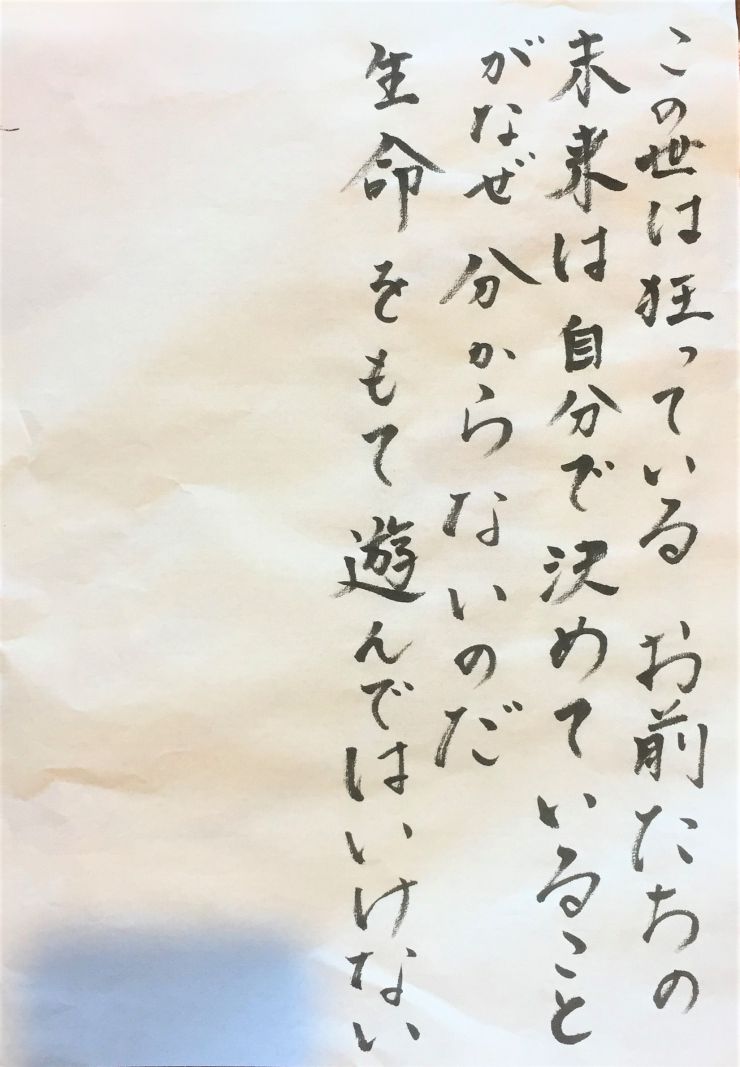 この世は狂っている お前たちの
未来は自分で決めていること
がなぜ分からないのだ
生命をもて遊んではいけない